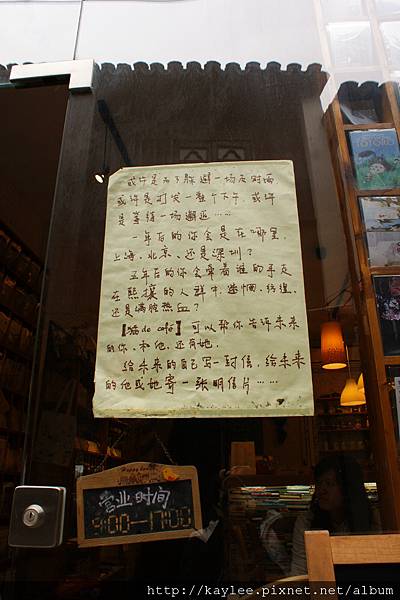 或许是为了躲避一场及时雨
或许是打发一整个下午，或许
是等待一场邂逅……
一年后的你会是在哪里，
上海、北京、还是深圳？
五年后的你会牵着谁的手走
在熙攘的人群中，迷惘、彷徨，
还是满腔热血？
【猫de café】可以帮你告诉未来
的你、和他、还有她。
给未来的自己写一封信，给未来
的他或她寄一张明信片……
营业时间
9:00-17:00
http://kaylee.pixnet.net/album